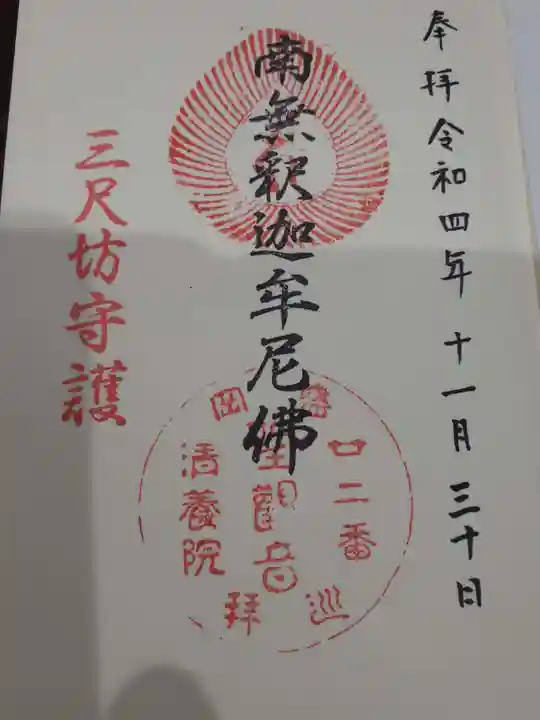 奉拝令和四年十一月三十日
南無釈迦牟尼佛
三尺坊守護
盛岡
廿二番
聖觀音
清養院
巡拜